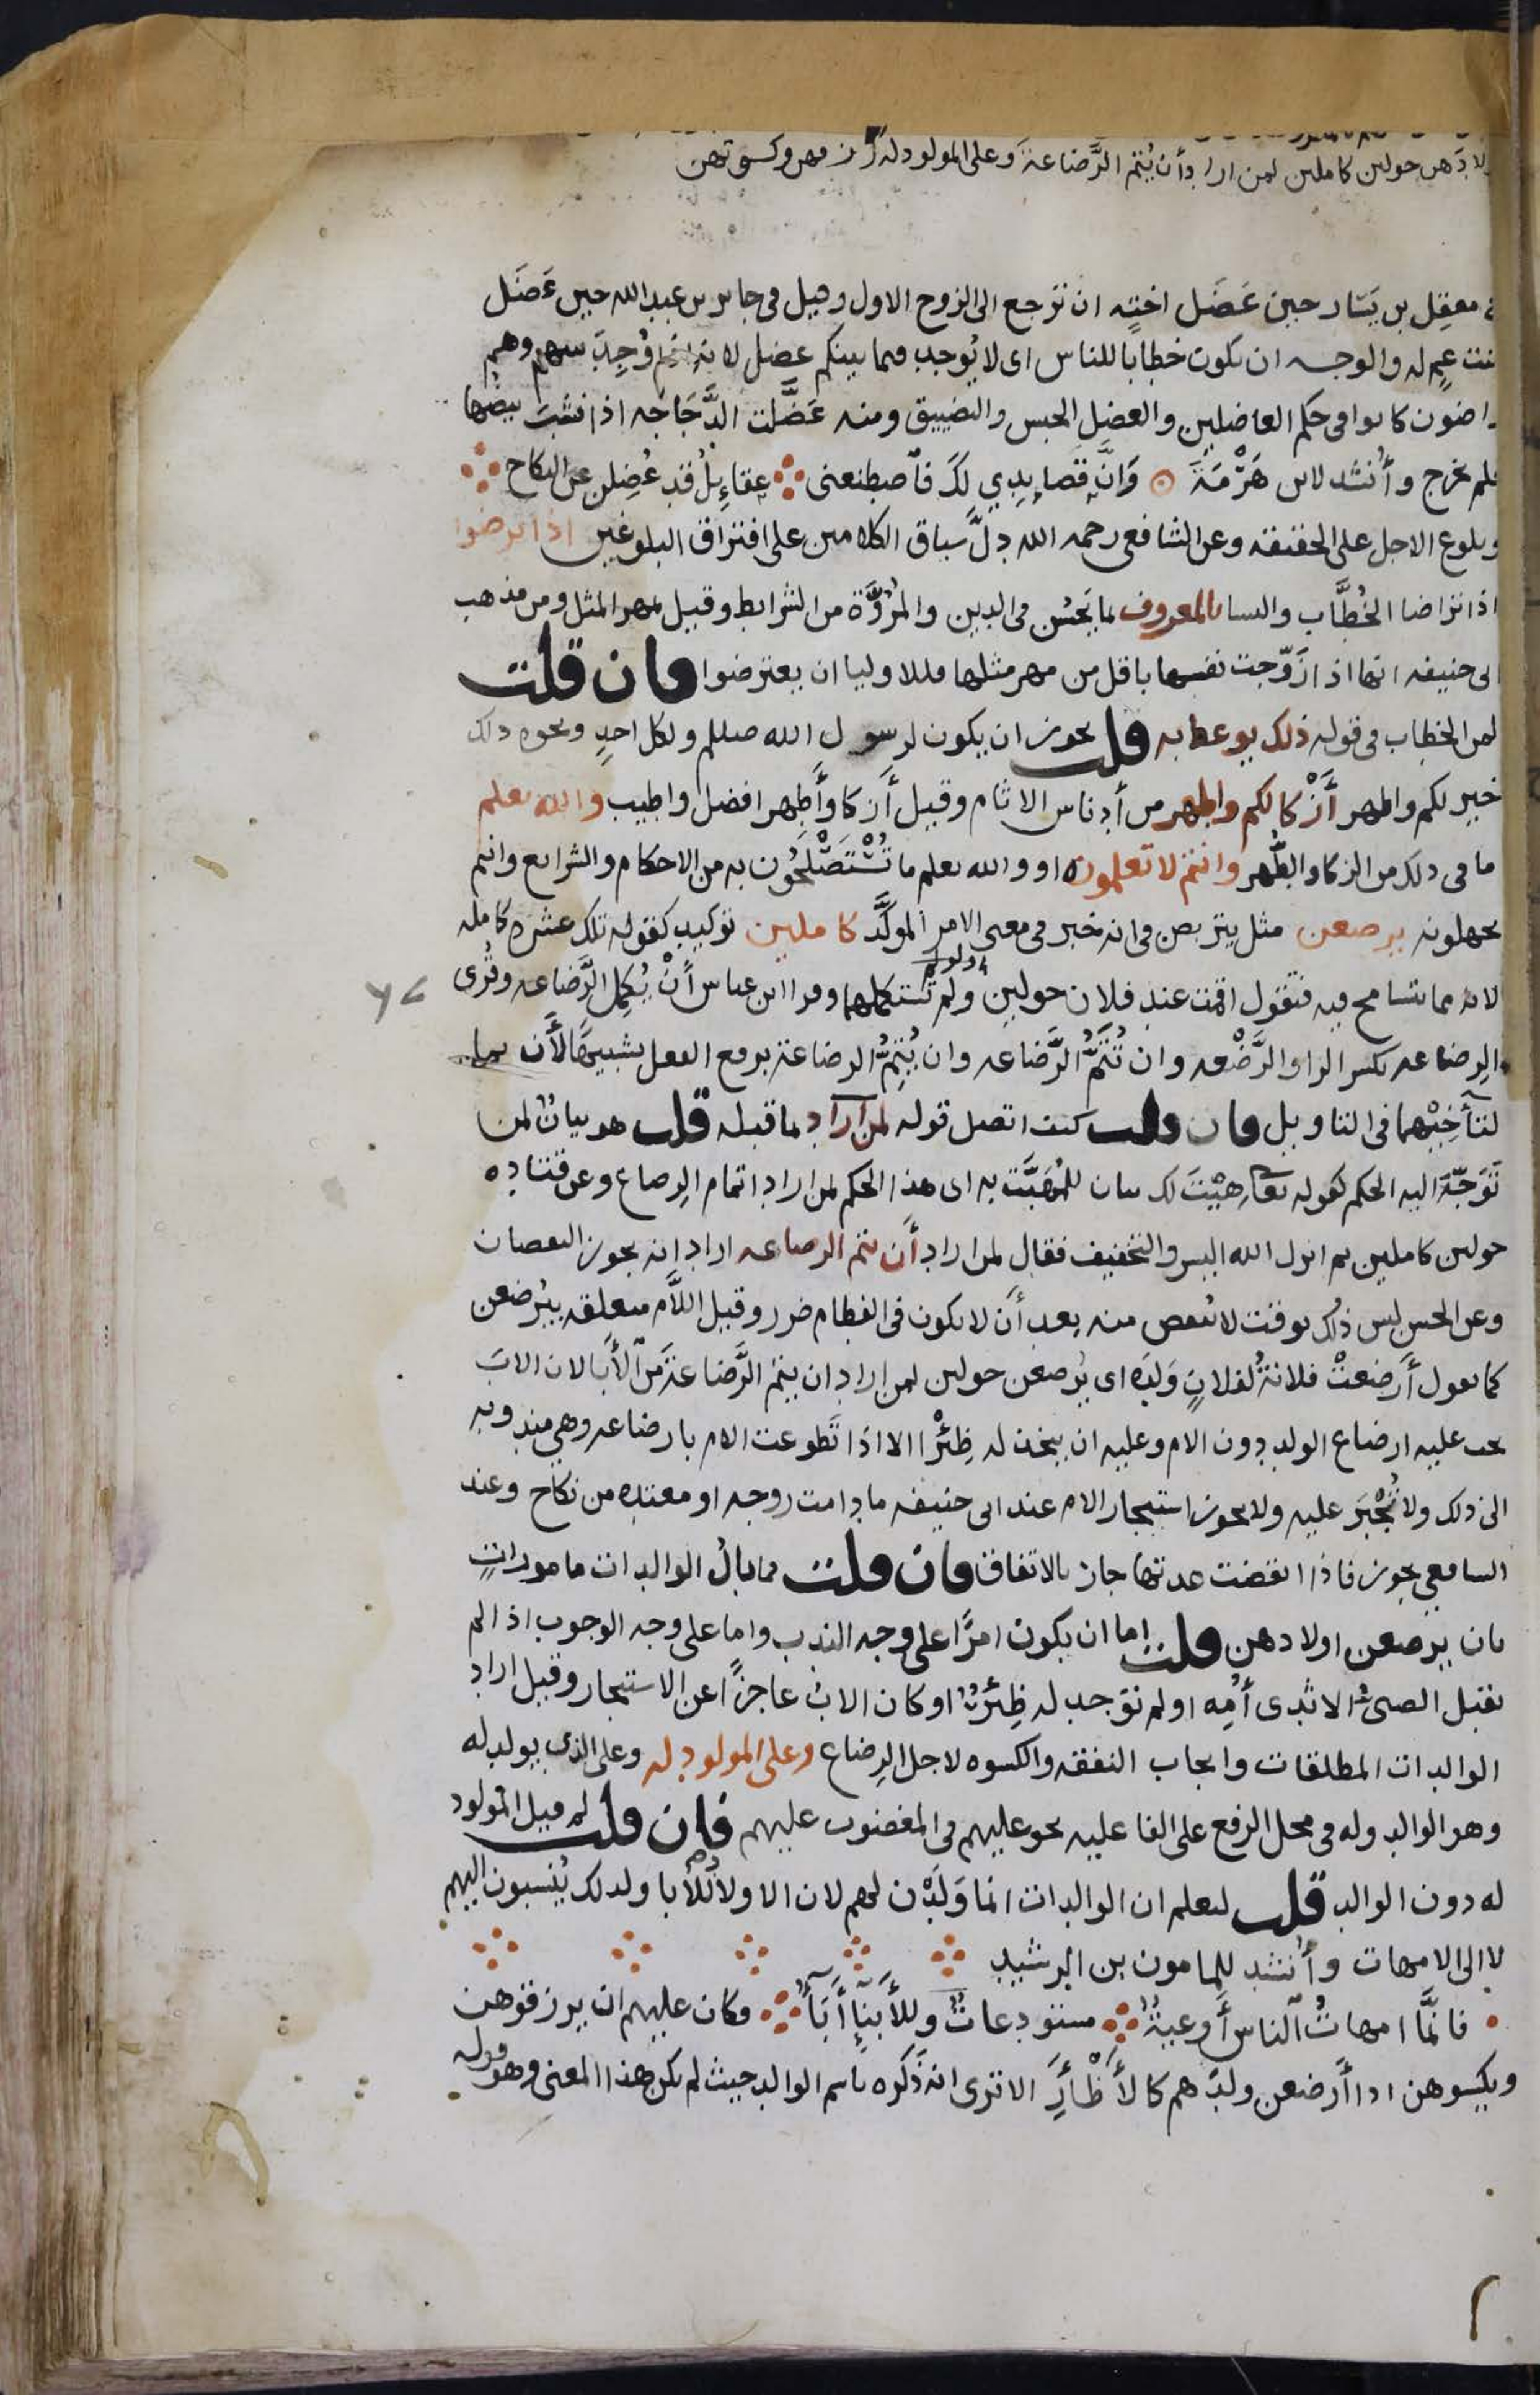 لادهن حولين كاملين لمن اراد أن يُتم الرَّضاعة وعلى المولود له رزقهن وكسوتهن
معقِل بن يَسَار حين عَضَل اختَه ان ترجع الى الزوج الاول وقيل فى جابر بن عبد الله حين عَضَل
بنت عمٍ له والوجه ان يكون خطابًا للناس اى لا يُوجد فيما بينكم عضل لانه اذا وُجِدَ بينهم وهم
راضون كانوا فى حكم العاضلين والعضل الحبس والتضييق ومنه عَضَّلت الدَّجَاجه اذا نشبَ بيضُها
فلم يخرج وأُنشد لابن هَرْمَةَ وَانَّ قصايدِي لكَ فاصطنعنى عقاءِيلُ قد عُضِلن عن النكاح
وبلوغ الاجل على الحقيقه وعن الشافعى رحمه الله دلَّ سياق الكلامين على افتراق البلوغين اذا تراضوا
اذا تراضا الخُطَّاب والنسا بالمعروف بما يَحسُن فى الدين والمُرُوَّة من الشرايط وقيل بمهر المثل ومن مذهب
ابى حنيفه انها اذا زَوّجت نفسها باقل من مهر مثلها فللاوليا ان يعترضوا فان قلت
لمن الخطاب فى قوله ذلك يوعظ به قلت يجوز ان يكون لرسول الله صللم ولكل احدٍ ونحوه ذلك
خير لكم واطهر أَزْكا لكم واطهر من أدناس الاثام وقيل أزكا وأَطهر افضل واطيب والله يعلم
ما فى ذلك من الزكا والطُّهر وانتم لا تعلمون او والله يعلم ما تُسْتَصْلَحُون به من الاحكام والشرايع وانتم
تجهلونه يرضعن مثل يتربصن فى انه خبر فى معنى الامر الموكَّد كاملين توكيد كقوله تلك عشره كامله
لانه مما يتسامح فيه فتقول اقمت عند فلان حولين ولم تستكملهما وقرا ابن عباس أَنْ يُكمل الرَّضاعه وقُرى
الرِضاعه بكسر الرا والرَّضْعه وان تُتَمُّ الرَّضاعه وان يُتِمُّ الرضاعة برفع الفعل تشبيهًا لأَن بما
لتأخِيْهما فى التاويل فان قلت كيف اتصل قوله لمن اراد بما قبله قلت هو بيانٌ لمن
تَوَجّهَ اليه الحكم كقوله تعا هيْتَ لك بيان للمُهَيَّت به اى هذا الحكم لمن اراد اتمام الرضاع وعن قتاده
حولين كاملين ثم انزل الله اليسر والتخفيف فقال لمن اراد أن يتم الرضاعه اراد انه يجوز النقصان
وعن الحسن ليس ذلك بوقت لا يُنقص منه بعد أن لا يكون فى الفطام ضرر وقيل اللاَّم متعلقه بيُرضعن
كما يقول أَرضعتْ فلانةُ لفلانٍ وَلَدَه اى يُرضعن حولين لمن اراد ان يتم الرَّضاعة من الأَبا لان الابَ
يجب عليه ارضاع الولد دون الام وعليه ان يتخذ له ظِئْرًا الا اذا تَطوعت الام بارضاعه وهى مندوبه
الى ذلك ولا تُجْبَرَ عليه ولا يجوز استيجار الام عند ابى حنيفه ما دامت زوجه او معتده من نكاح وعند
الشافعى يجوز فاذا انقضت عدتها جاز بالاتفاق فان قلت فما بالُ الوالدات ماموراتٍ
بان يرضعن اولادهن قلت اما ان يكون امرًا على وجه الندب واما على وجه الوجوب اذا لم
يقبل الصبىُ الا ثدى أُمِه او لم توجد له ظِئرٌ او كان الابُ عاجزًا عن الاستيجار وقيل اراد
الوالدات المطلقات وايجاب النفقه والكسوه لاجل الرِضاع وعلى المولود له وعلى الذى يولد له
وهو الوالد وله فى محل الرفع على الفاعليه نحو عليهم فى المغضوب عليهم فان قلت لم قيل المولود
له دون الوالد قلت ليعلم ان الوالدات انما وَلَدْن لهم لان الاولاد للأبا ولذلك يُنسبون اليهم
لا الى الامهات وأُنشد للمامون بن الرشيد
فانَّما امهاتُ الناس أَوعيةٌ مستودعاتٌ وللأَبنآءِ أَبَآءُ فكان عليهم ان يرزقوهن
ويكسوهن اذا أَرضعن ولدَهم كالأَظْأَرِ الا ترى انه ذكره باسم الوالد حيث لم يكن هذا المعنى وهو قوله